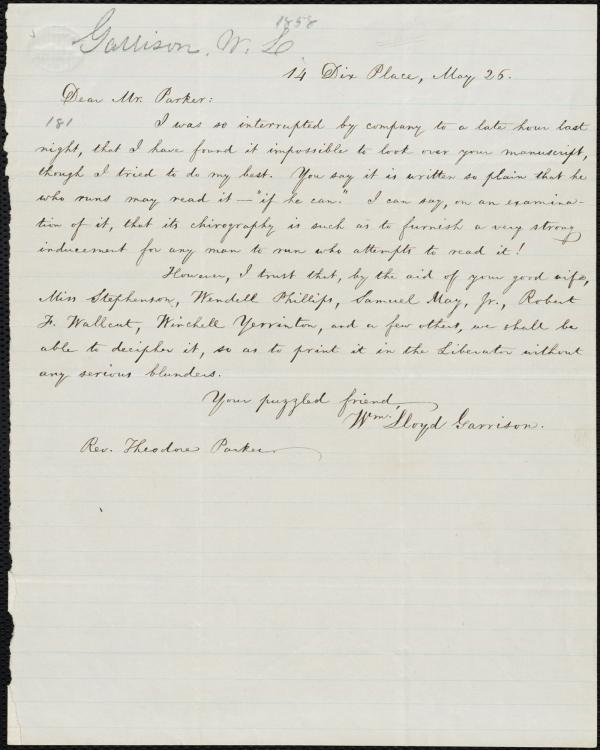 1858
Garrison, W. L
14 Dix Place, May 26.
Dear Mr. Parker:
181
I was so interrupted by company to a late hour last
night, that I have found it impossible to look over your manuscript,
though I tried to do my best. You say it is written so plain that he
who runs may read it — "if he can." I can say, on an examina-
tion of it, that its chirography is such as to furnish a very strong
inducement for any man to run who attempts to read it!
However, I trust that, by the aid of your good wife,
Miss Stephenson, Wendell Phillips, Samuel May, Jr., Robert
F. Wallcut, Winchell Yerrinton, and a few others, we shall be
able to decipher it, so as to print it in the Liberator without
any serious blunders.
Your puzzled friend,
Wm. Lloyd Garrison.
Rev. Theodore Parker.